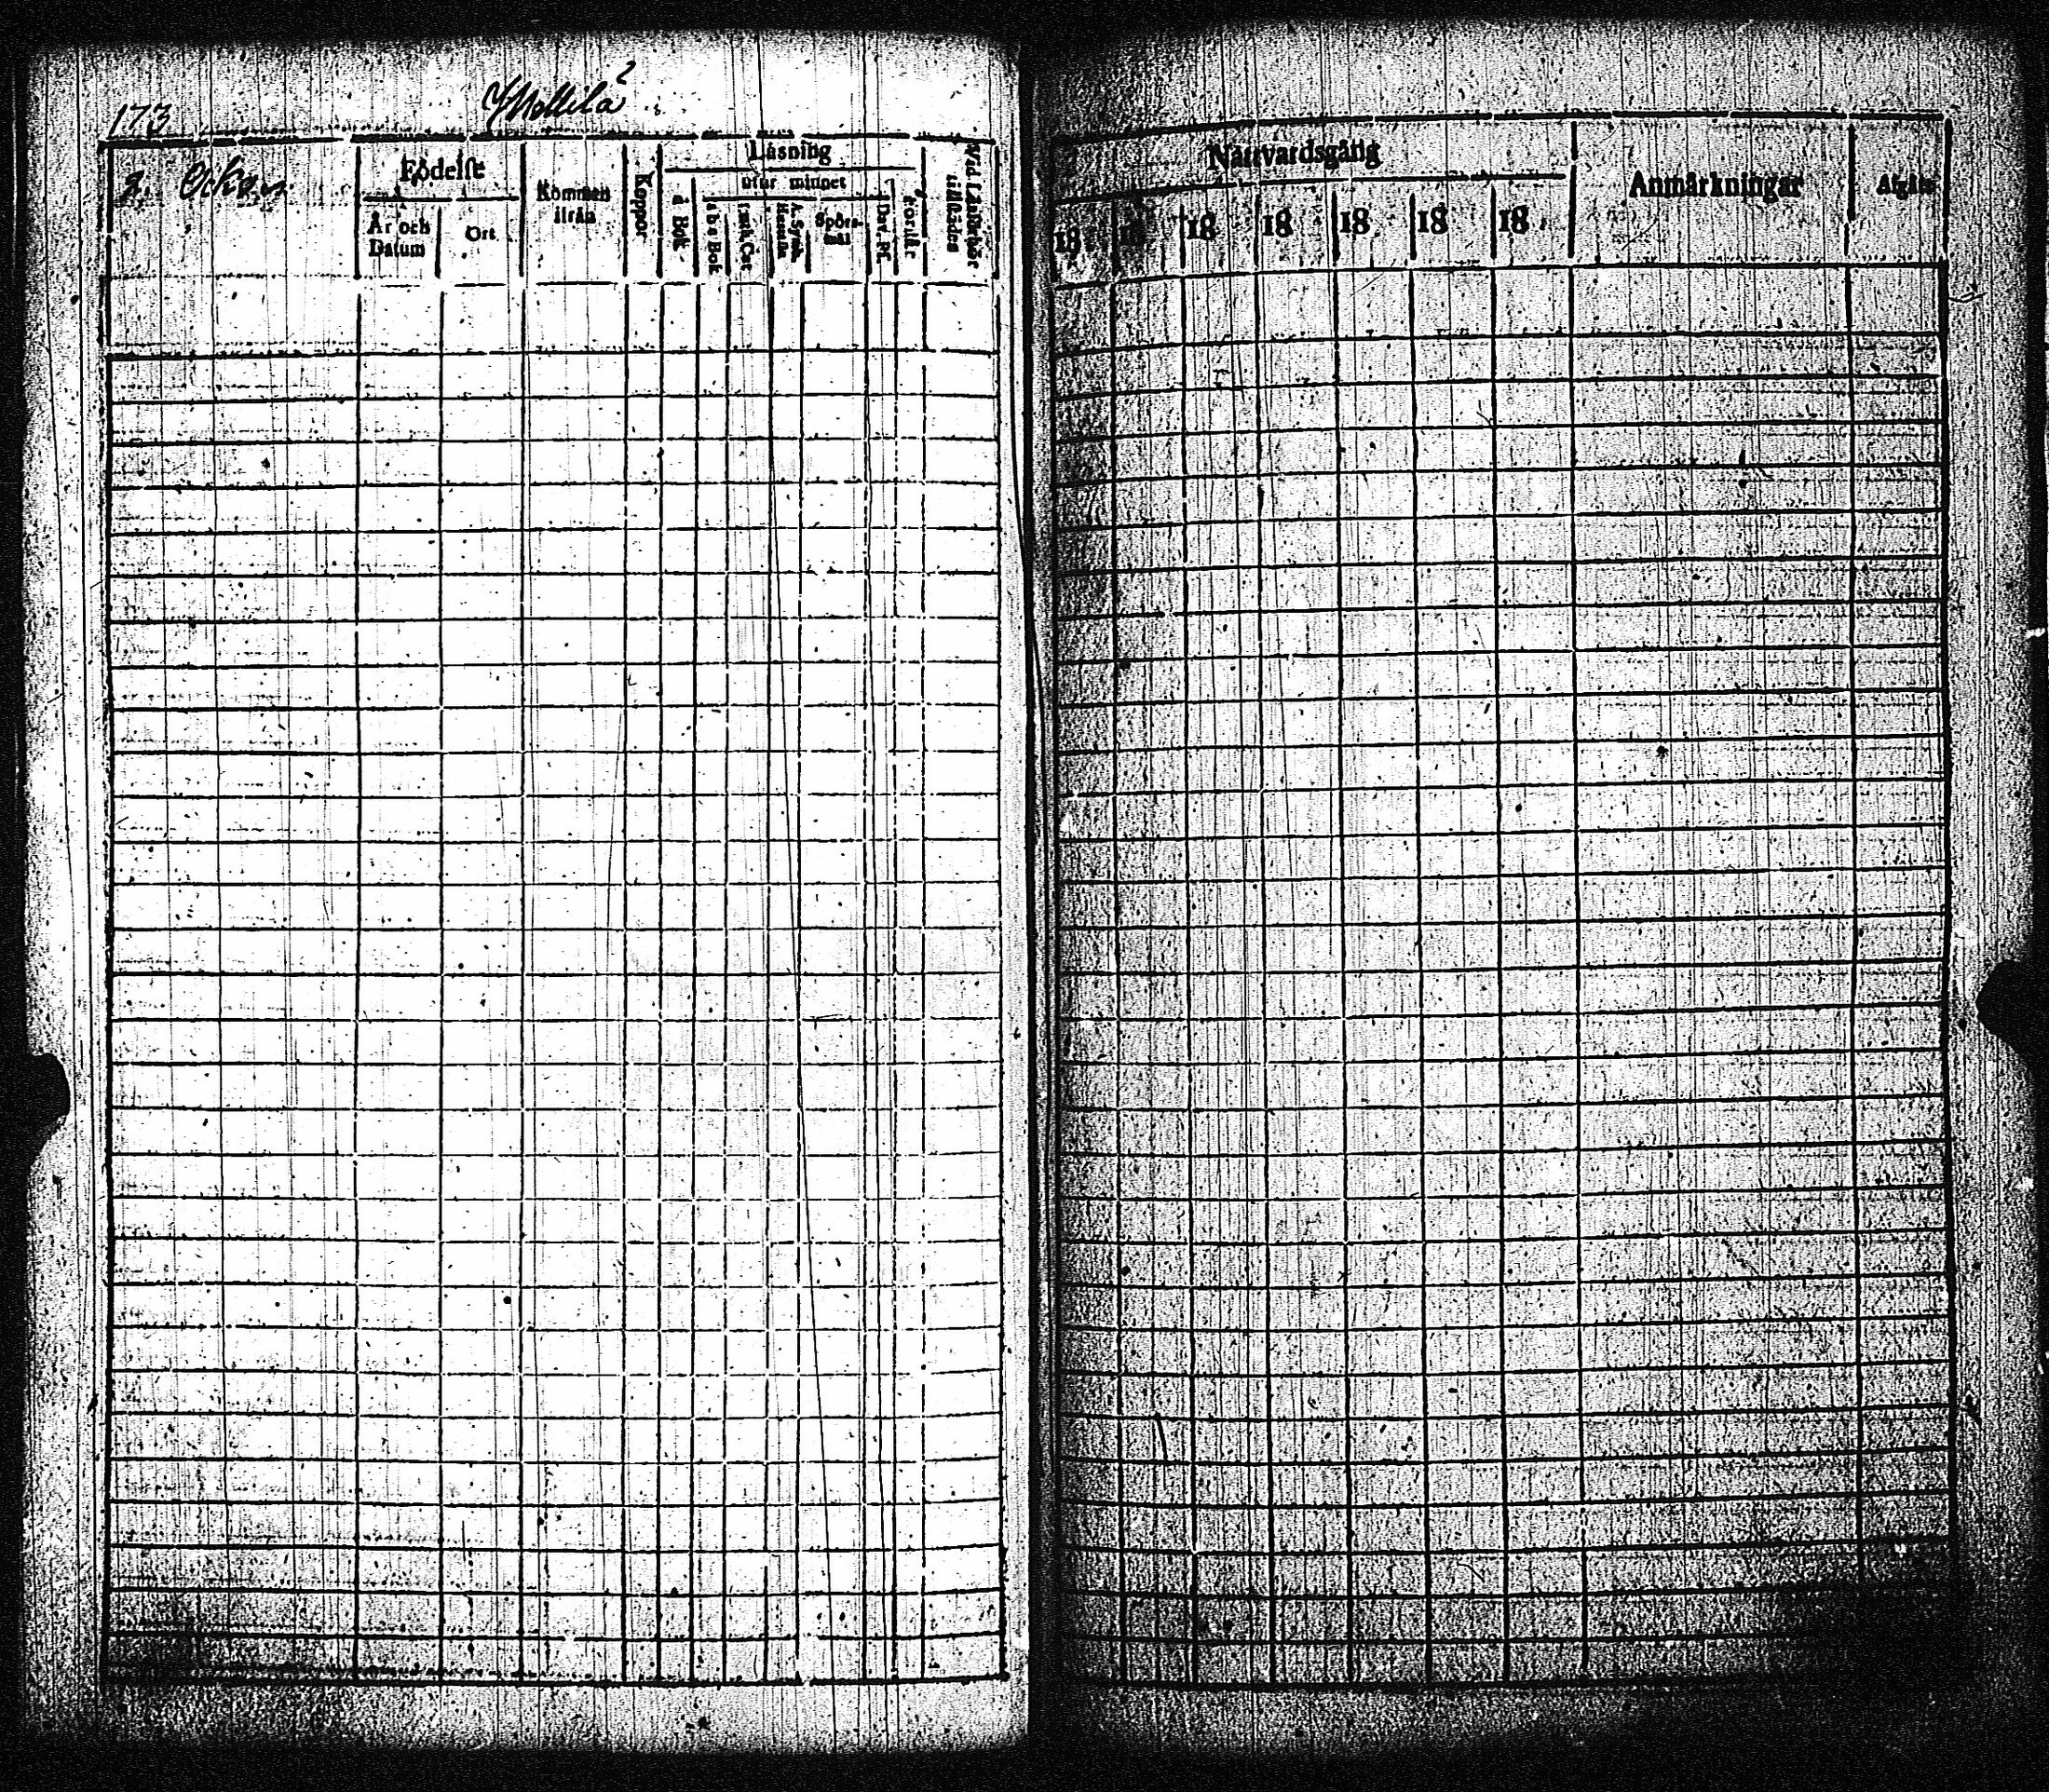 173
2
2. Ockon
Födelse
År och Datum
Ort
Kommen ifrån
Koppor
Läsning
utur minnet
å Bok
a b c Bok
Spörs-mål
Dav. Ps.
Förstår
Vid Läsförhör tillstädes
Nattvardsgång
18 18 18 18 18 18 18
Anmärkningar
Afgått